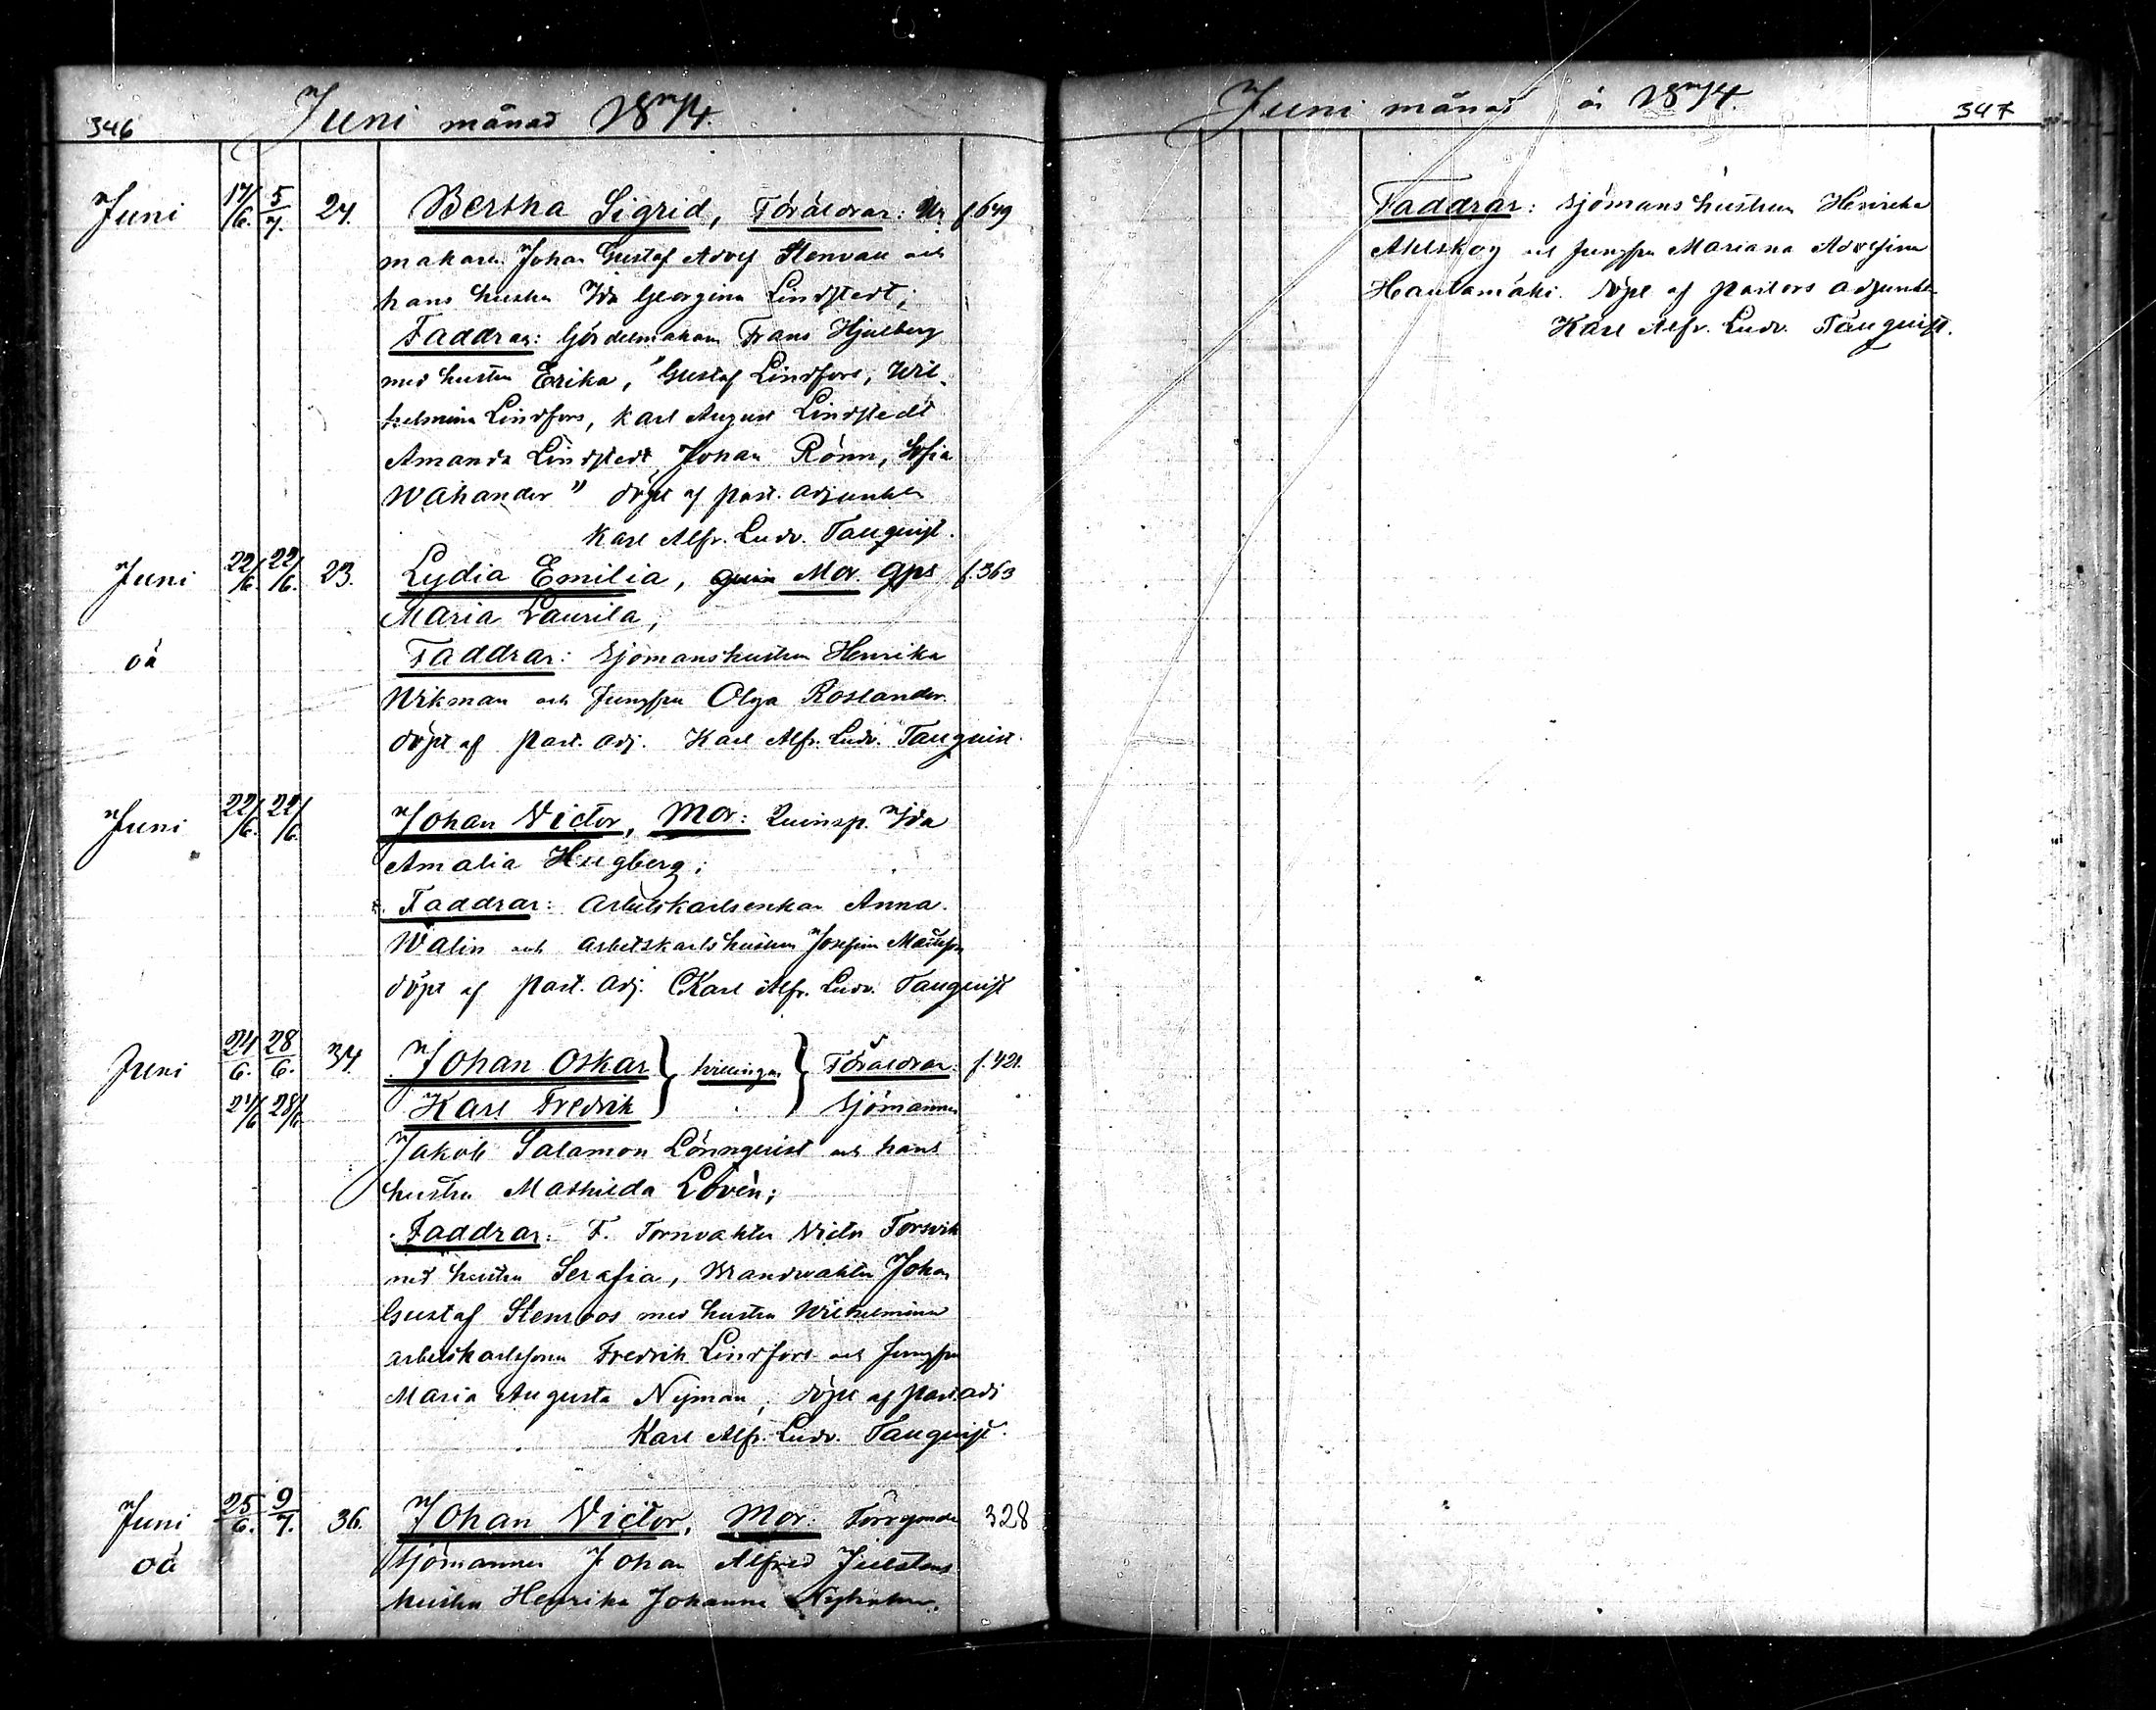 346 Juni månad 1874.
Juni 17/6. 5/7. 24. Bertha Sigrid, Föräldrar: Ur f 649
makaren Johan Gustaf Adolf Stenvall och
hans hustru Ida Georgina Lindstedt;
Faddrar: Gördelmakaren Frans Hjulberg
med hustru Erika, Gustaf Lindfors, Wil-
helmina Lindfors, Karl August Lindstedt
Amanda Lindstedt, Johan Rönn, Sofia
Wahander" döpt af past. adjunkten
Karl Alfr. Ludv. Tanquist.
Juni 22/6. 22/6. 23. Lydia Emilia, Mor. qps f. 363
Maria Laurila;
oä Faddrar: Sjömanshustrun Henrika
Wikman och Jungfru Olga Roslander.
döpt af past. adj. Karl Alfr. Ludv. Tanquist.
Juni 22/6. 22/6. Johan Victor, Mor: Quinsp. Ida
Amalia Hugberg;
Faddrar: Arbetskarlsenkan Anna
Walin och arbetskarlshustrun Josefina
döpt af past. adj. Karl Alfr. Ludv. Tanquist
Juni 24/6. 28/6. 34. Johan Oskar } tvillingar } Föräldrar f. 421.
24/6 28/6 Karl Fredrik Sjömannen
Jakob Salamon Lönnquist och hans
hustru Mathilda Lovén;
Faddrar: F. Tornvakten Victor Forsvik
med hustru Serafia, Brandvakten Johan
Gustaf Stenroos med hustru Wilhelmina
arbetskarlssonen Fredrik Lindfors och Jungfru
Maria Augusta Nyman; döpt af past. adj
Karl Alfr. Ludv. Tanquist.
Juni 25/6. 9/7. 36. Johan Victor, Mor: 328
oä Sjömannen Johan Alfred
hustru Henrika Johanna Nyholm.
Juni månad år 1874. 347
Faddrar: Sjömans hustrun Henrika
Ahlskog och Jungfru Mariana Adolfina
Hautamäki. döpt af pastors adjunkten
Karl Alfr. Ludv. Tanquist.